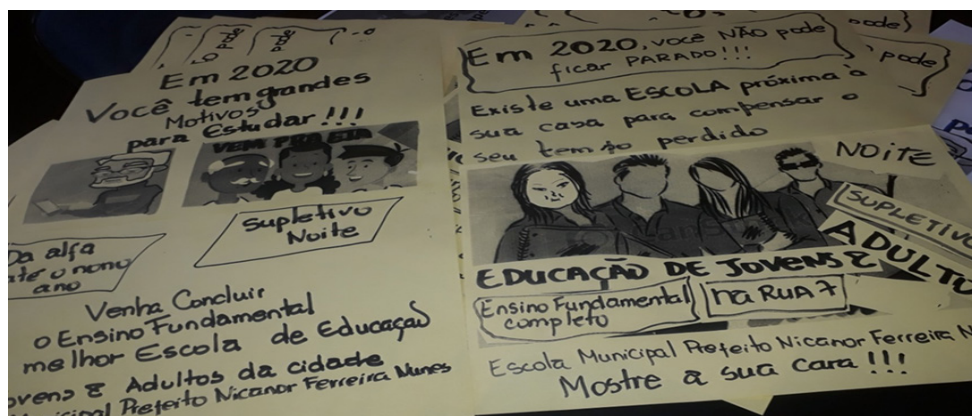 pode
pode
Em 2020
Você tem grandes
Motivos
para Estudar!!!
VEM PRA EJA
Supletivo
Noite
Da alfa
ate o nono
ano
Venha Concluir
o Ensino Fundamental
melhor Escola de Educação
ovens & Adultos da cidade
nicipal Prefeito Nicanor Ferreira Nunes
Em 2020, você NÃO pode
ficar PARADO!!!
pode
Existe uma ESCOLA próxima à
sua casa para compensar o
seu tempo perdido
NOITE
SUPLETIVO
EDUCAÇÃO DE JOVENS &
ADULTO
Ensino Fundamental
completo
na RUA 7
Escola Municipal Prefeito Nicanor Ferreira N
Mostre a sua cara!!!